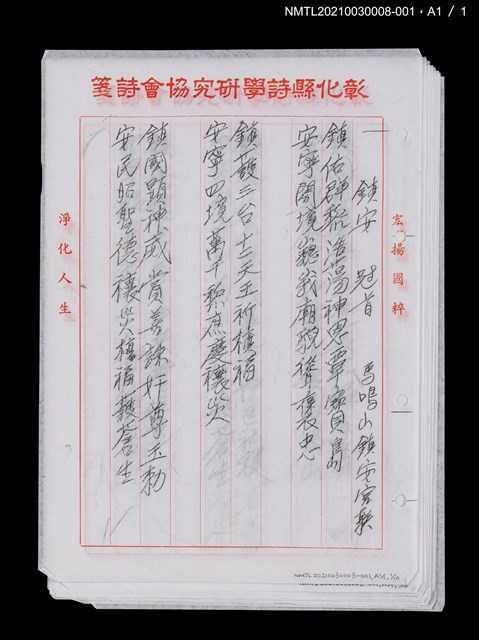 NMTL20210030008-001，A1 / 1
彰化縣詩學研究協會詩箋
宏揚國粹
一 鎮安 冠首 馬鳴山鎮安宮聯
鎮佑群黎浩蕩神恩覃寰島
安寧闔境巍峨廟貌褒忠
鎮護三台十二天王祈植福
安寧四境萬千黎庶慶禳災
鎮國顯神威賞善誅奸尊玉勅
安民昭聖德禳災植福護蒼生
淨化人生
NMTL20210030008-001, A1/1,1/10